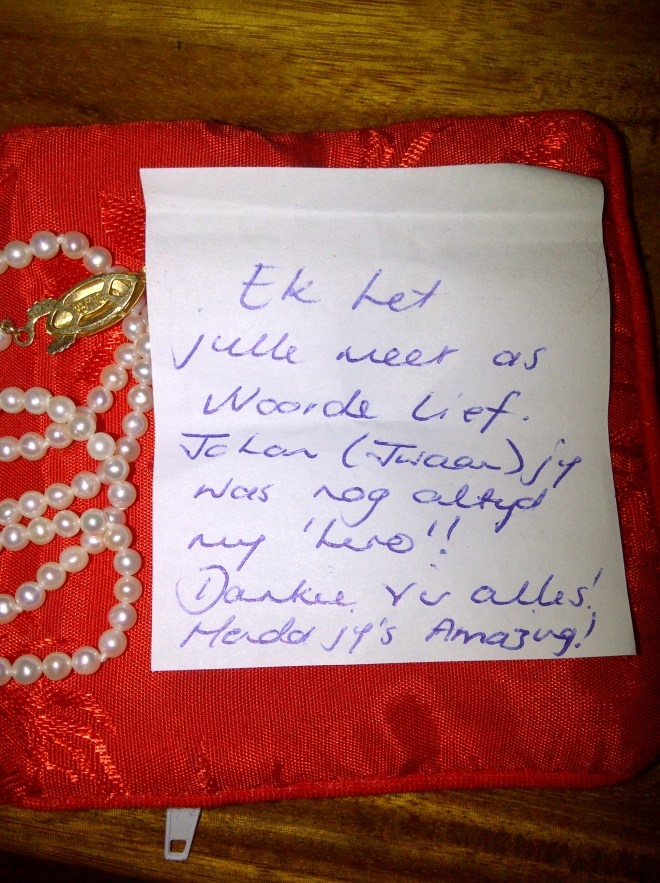 Ek het
julle meer as
Woorde lief.
Johan (Jwaan) jy
was nog altyd
my 'hero'!
Dankie vir alles!
jy's Amazing!